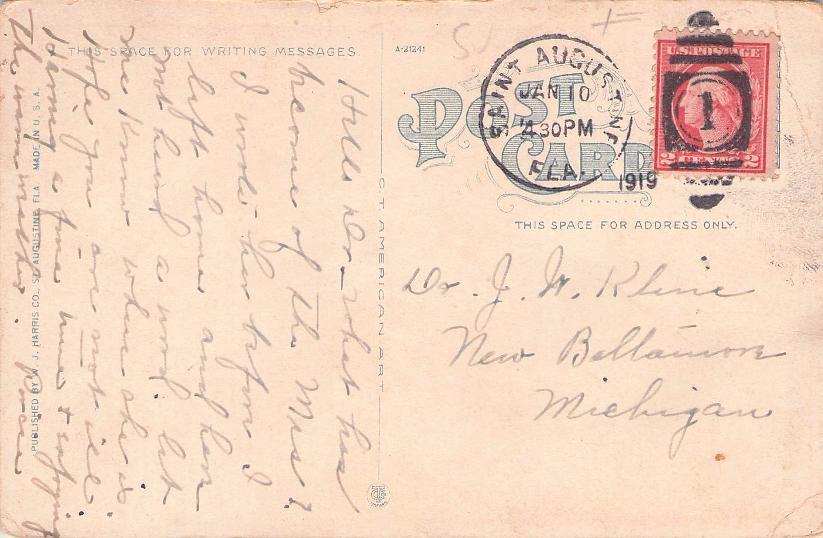 THIS SPACE FOR WRITING MESSAGES.
A-21241
POST CARD
SAINT AUGUSTINE
JAN 10
4 30PM
FLA.
1919
U.S. POSTAGE
2 CENTS 2
1
THIS SPACE FOR ADDRESS ONLY.
Dr. J. W. Kline
New Baltimore
Michigan
Hello Dr. what has
become of the Mrs?
I wrote her before I
left home and have
not heard a word. let
me know where she is.
Hope you are not ill.
Having a fine time & enjoying
the warm weather.
ST. AMERICAN ART
PUBLISHED BY W. J. HARRIS CO., ST. AUGUSTINE, FLA. MADE IN U. S. A.